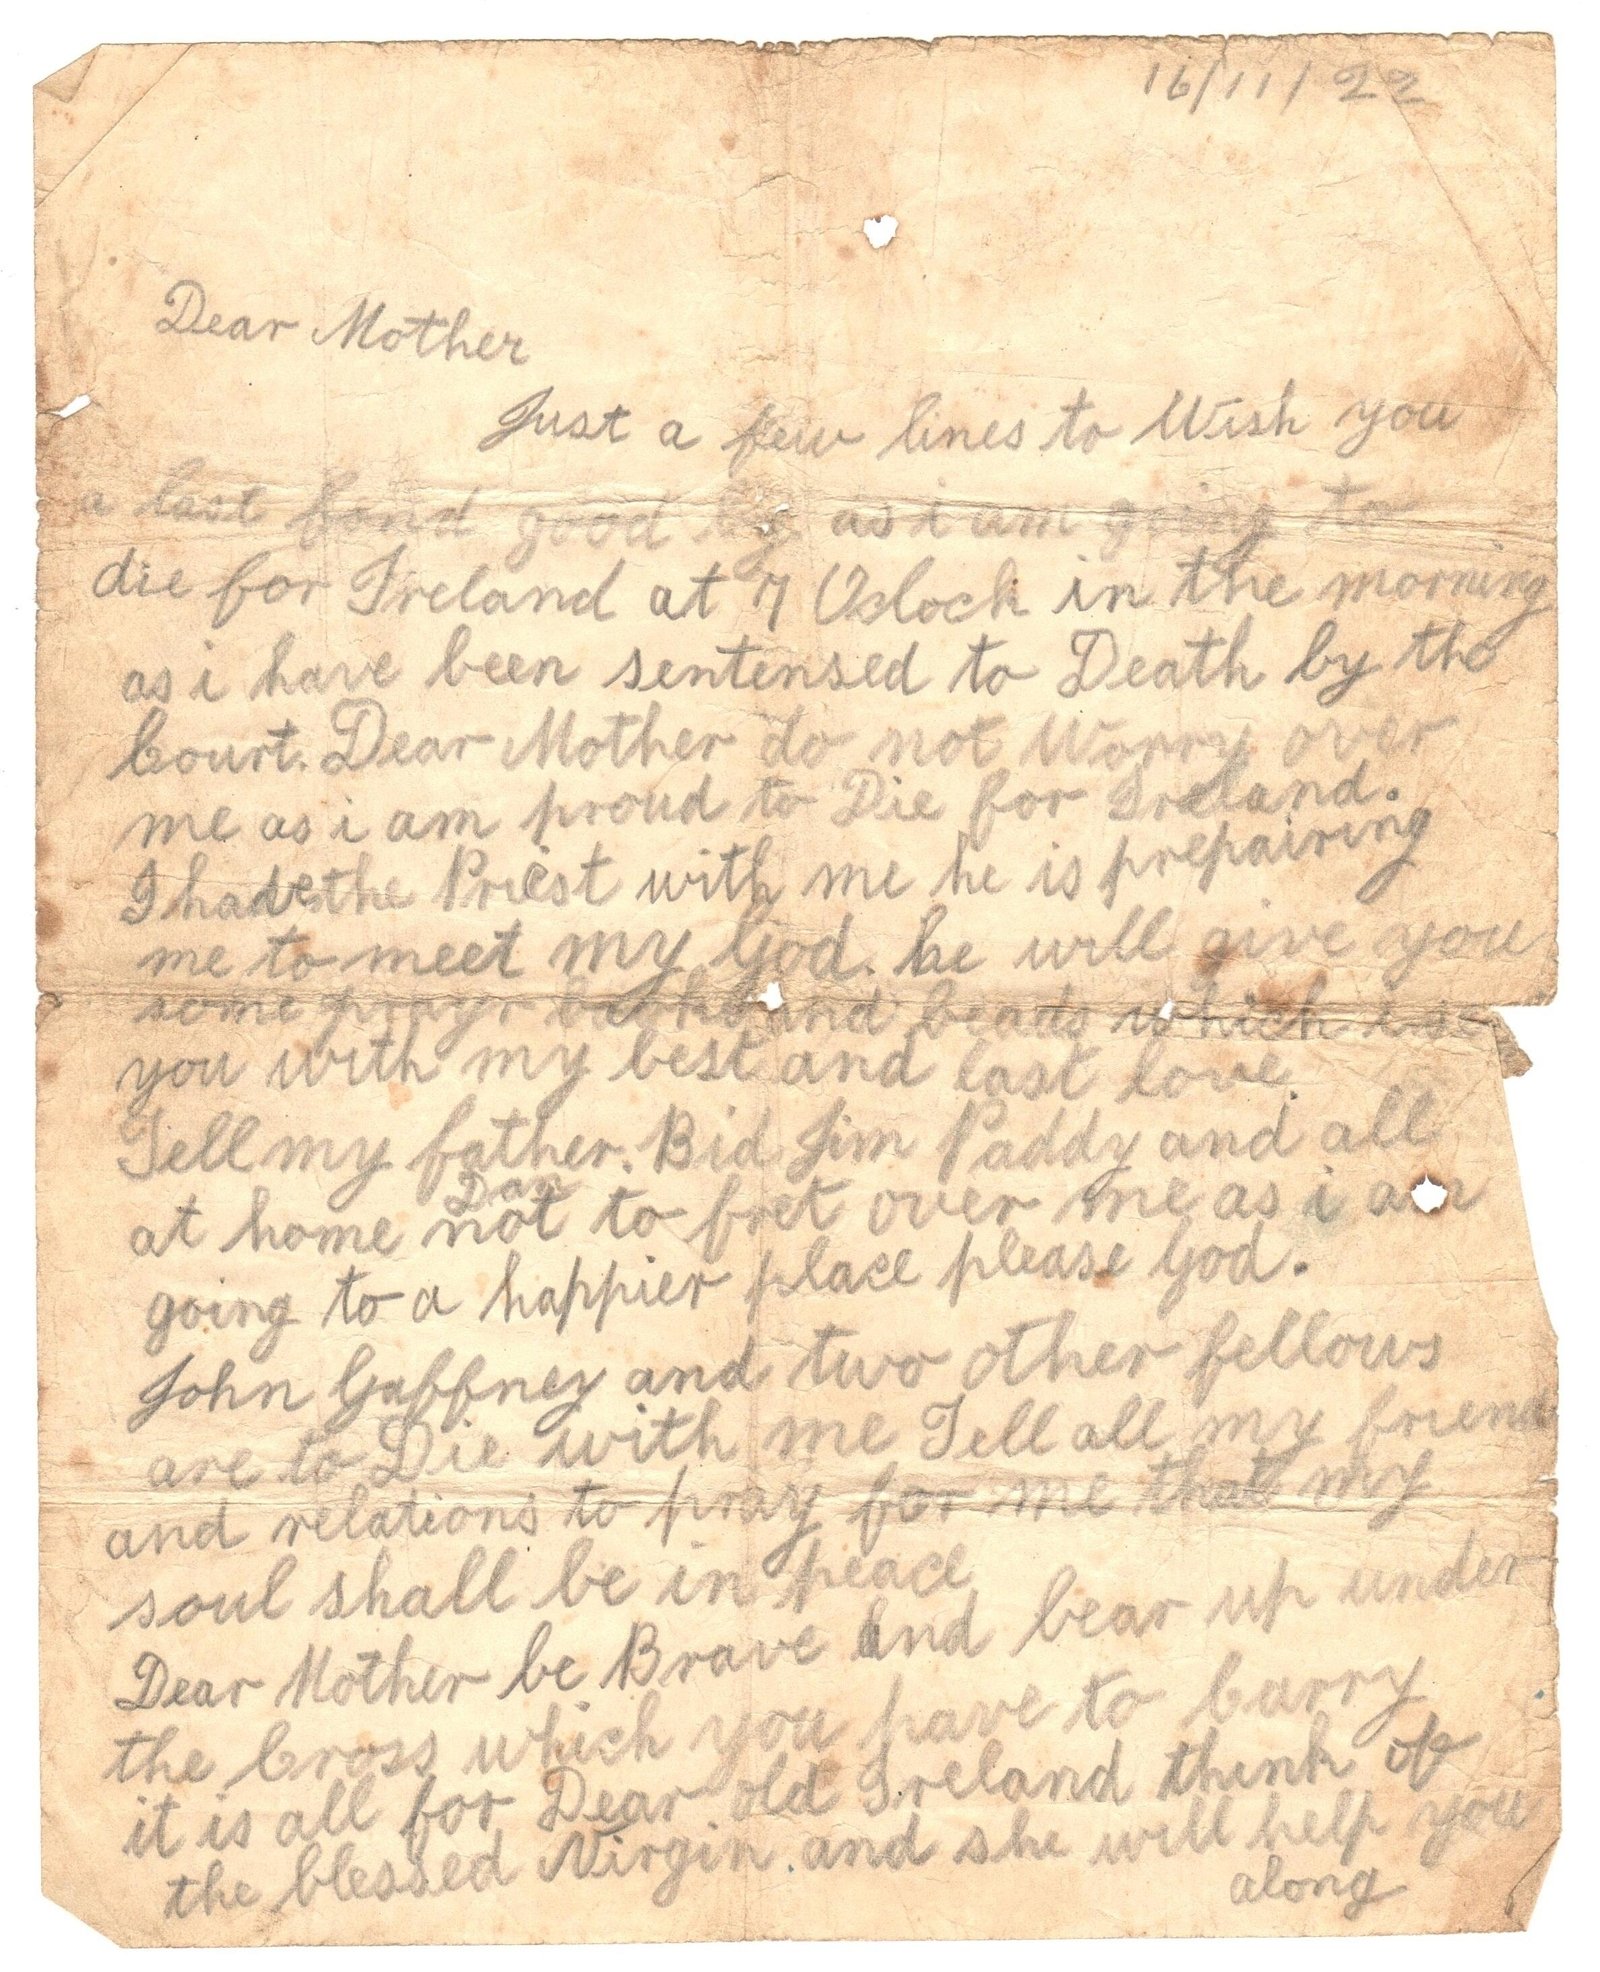 16/11/22
Dear Mother
Just a few lines to Wish you
a last fond good by as i am going to
die for Ireland at 7 Oclock in the morning
as i have been sentensed to Death by the
Court. Dear Mother do not Worry over
me as i am proud to Die for Ireland.
I have the Priest with me he is prepairing
me to meet my God. he will give you
some prayr and beads which is
you with my best and last love.
Tell my father. Bid Jim Paddy and all
Dan
at home not to fret over me as i am
going to a happier place please God.
John Gaffney and two other fellows
are to Die with me Tell all my friend
and relations to pray for me that my
soul shall be in peace
Dear Mother be Brave and bear up under
the Cross which you have to Carry
it is all for Dear old Ireland think of
the blessed Virgin and she will help you
along